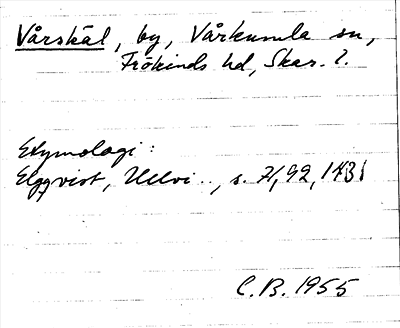 Vårskäl, by, Vårkumla sn,
Frökinds hd, Skar. l.
Etymologi:
Elgqvist, Ullvi.., s. 71, 92, 143
C.B. 1955